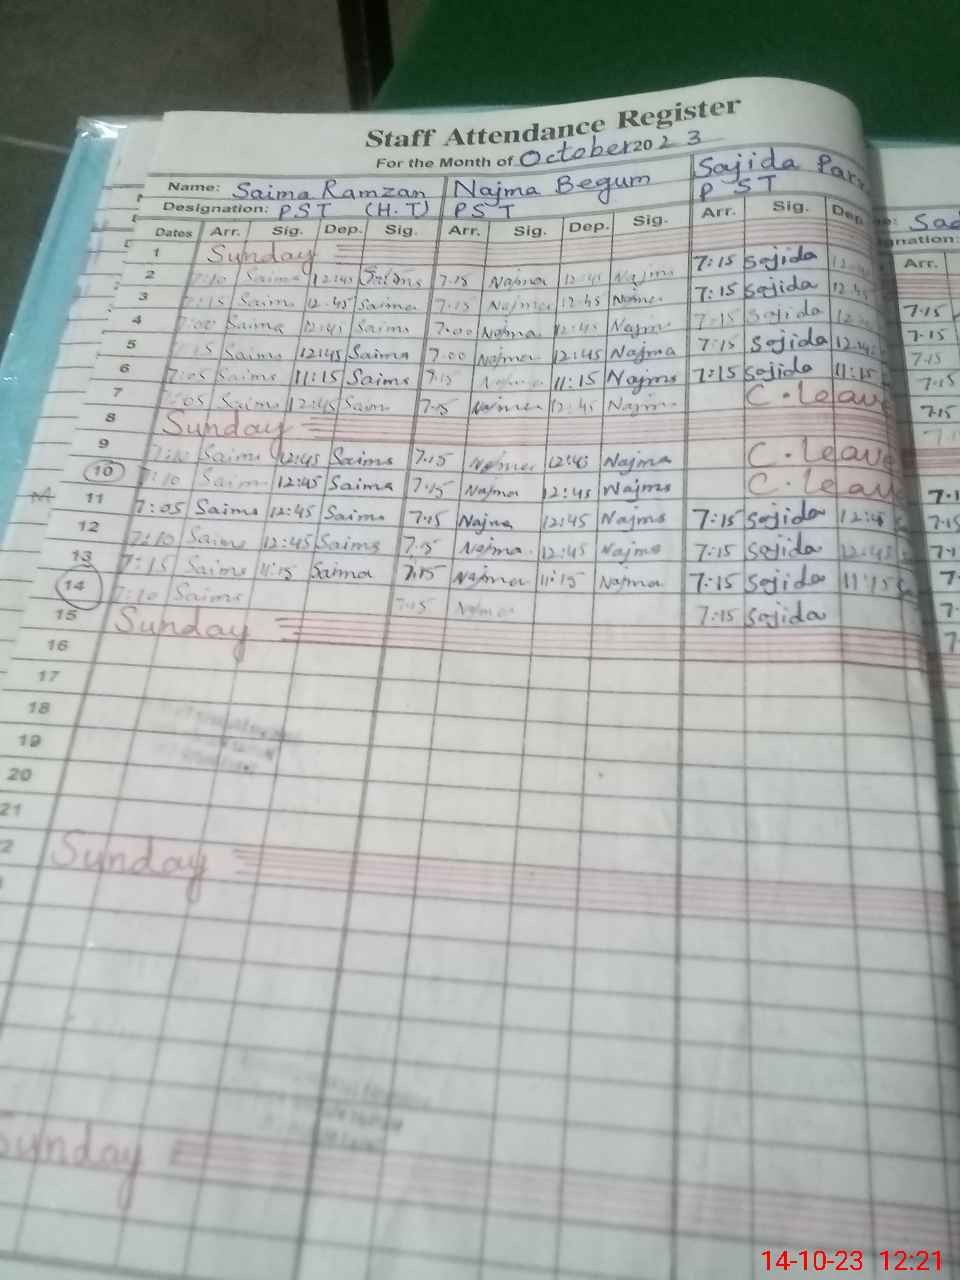 Staff Attendance Register
For the Month of October 2023
Name: Saima Ramzan Najma Begum Sajida
Designation: PST (H.T) PST PST
Dates Arr. Sig. Dep. Sig. Arr. Sig. Dep. Sig. Arr. Sig. Dep.
1 Sunday
2 7:10 Saima 12:45 Saima 7:15 Najma 12:45 Najma 7:15 Sajida
3 7:15 Saima 12:45 Saima 7:15 Najma 12:45 Najma 7:15 Sajida 12:45
4 7:00 Saima 12:45 Saima 7:00 Najma 12:45 Najma 7:15 Sajida
5 Saima 12:45 Saima 7:00 Najma 12:45 Najma 7:15 Sajida 12:45
6 7:05 Saima 11:15 Saima 7:15 Najma 11:15 Najma 7:15 Sajida 11:15
7 7:05 Saima 12:45 Saima 7:15 Najma 12:45 Najma C. Leave
8 Sunday
9 7:10 Saima 12:45 Saima 7:15 Najma 12:45 Najma C. Leave
10 7:10 Saima 12:45 Saima 7:15 Najma 12:45 Najma C. Leave
11 7:05 Saima 12:45 Saima 7:15 Najma 12:45 Najma 7:15 Sajida 12:45
12 7:10 Saima 12:45 Saima 7:15 Najma 12:45 Najma 7:15 Sajida 12:45
13 7:15 Saima 11:15 Saima 7:15 Najma 11:15 Najma 7:15 Sajida 11:15
14 7:10 Saima 7:15 Najma 7:15 Sajida
15 Sunday
16
17
18
19
20
21
Sunday
Sunday
Arr.
7:15
7:15
7:15
7:15
7:15
14-10-23 12:21